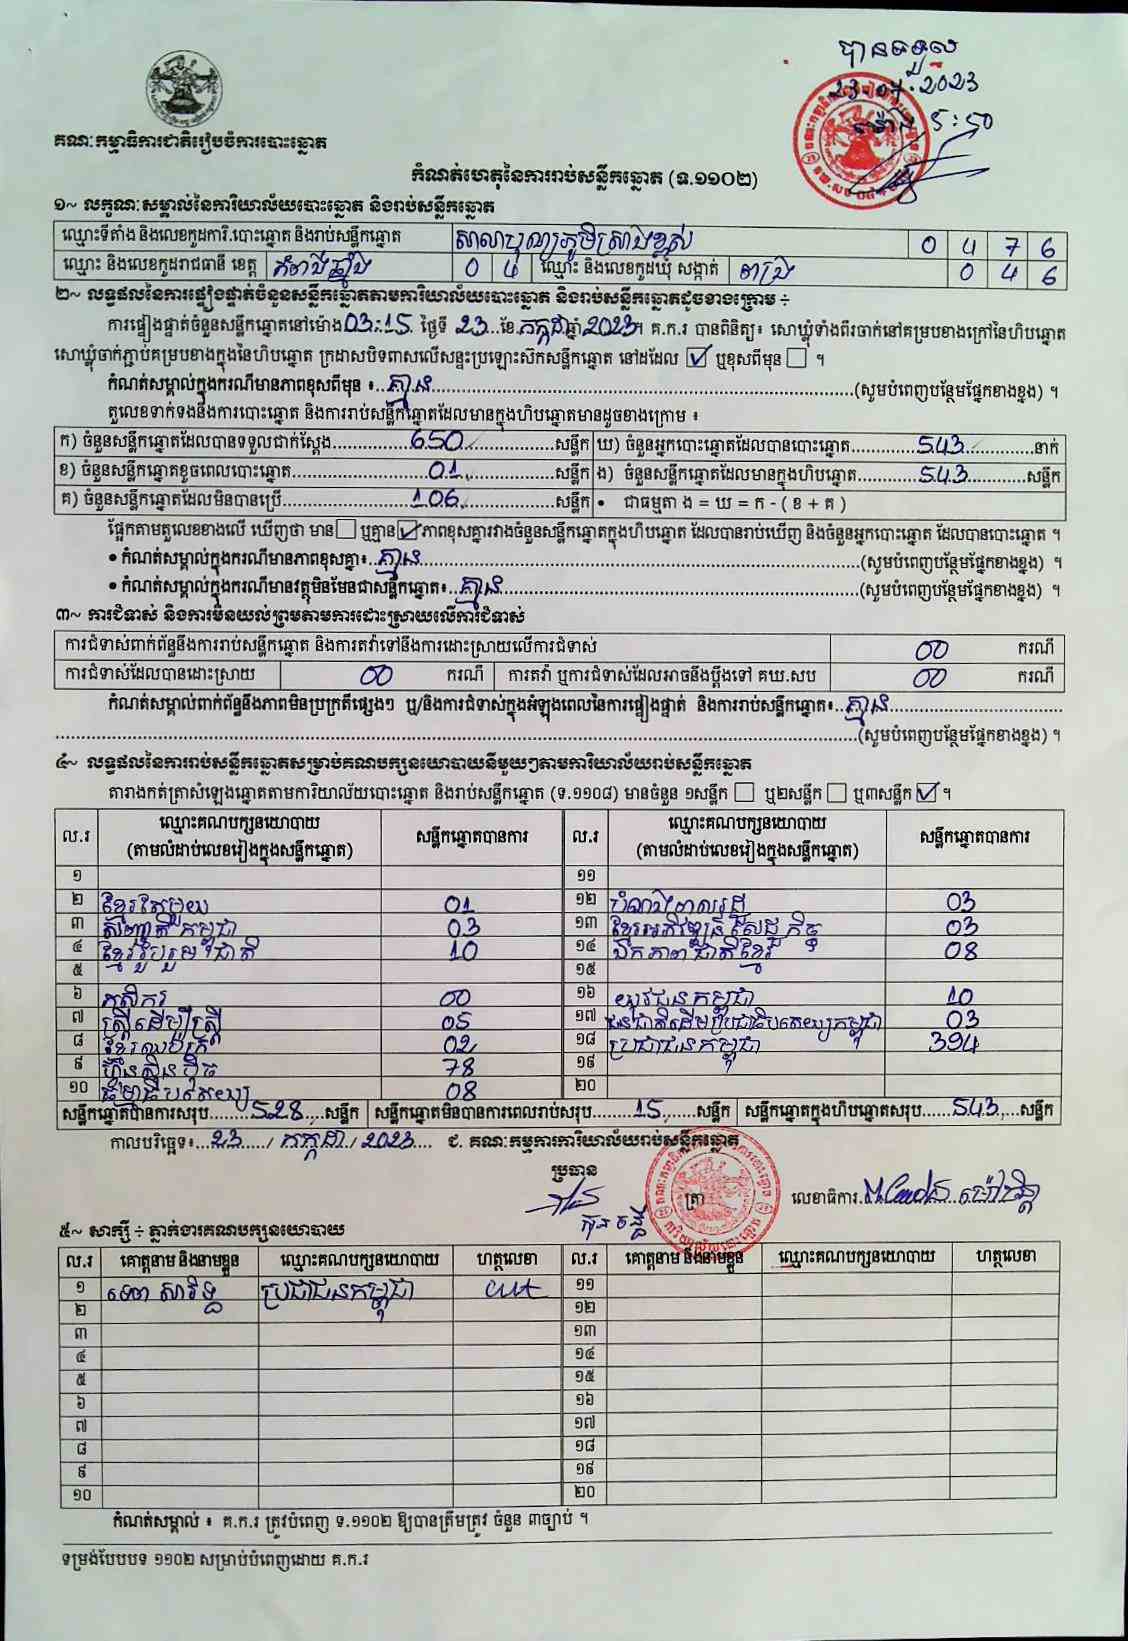 បានទទួល
23.07.2023
ម៉ោង 5:50
គណៈកម្មាធិការជាតិរៀបចំការបោះឆ្នោត
កំណត់ហេតុនៃការរាប់សន្លឹកឆ្នោត (ទ.១១០២)
១~ លក្ខណៈសម្គាល់នៃការិយាល័យបោះឆ្នោត និងរាប់សន្លឹកឆ្នោត
ឈ្មោះទីតាំង និងលេខកូដការិ.បោះឆ្នោត និងរាប់សន្លឹកឆ្នោត សាលាបុណ្យភូមិស្រះខ្ពស់ 0 4 7 6
ឈ្មោះ និងលេខកូដរាជធានី ខេត្ត កំពង់ឆ្នាំង 0 4 ឈ្មោះ និងលេខកូដឃុំ សង្កាត់ ពង្រ 0 4 6
២~ លទ្ធផលនៃការផ្ទៀងផ្ទាត់ចំនួនសន្លឹកឆ្នោតតាមការិយាល័យបោះឆ្នោត និងរាប់សន្លឹកឆ្នោតដូចខាងក្រោម ÷
ការផ្ទៀងផ្ទាត់ចំនួនសន្លឹកឆ្នោតនៅម៉ោង 03:15 ថ្ងៃទី 23 ខែ កក្កដា ឆ្នាំ 2023។ គ.ក.រ បានពិនិត្យ៖ សោឃ្លុំទាំងពីរចាក់នៅគម្របខាងក្រៅនៃហិបឆ្នោត
សោឃ្លុំចាក់ភ្ជាប់គម្របខាងក្នុងនៃហិបឆ្នោត ក្រដាសបិទពាសលើសន្ទះប្រឡោះស៊កសន្លឹកឆ្នោត នៅដដែល ☑ ឬខុសពីមុន ☐ ។
កំណត់សម្គាល់ក្នុងករណីមានភាពខុសពីមុន ៖ គ្មាន (សូមបំពេញបន្ថែមផ្នែកខាងខ្នង) ។
តួលេខទាក់ទងនឹងការបោះឆ្នោត និងការរាប់សន្លឹកឆ្នោតដែលមានក្នុងហិបឆ្នោតមានដូចខាងក្រោម ៖
ក) ចំនួនសន្លឹកឆ្នោតដែលបានទទួលជាក់ស្តែង 650 សន្លឹក ឃ) ចំនួនអ្នកបោះឆ្នោតដែលបានបោះឆ្នោត 543 នាក់
ខ) ចំនួនសន្លឹកឆ្នោតខូចពេលបោះឆ្នោត 01 សន្លឹក ង) ចំនួនសន្លឹកឆ្នោតដែលមានក្នុងហិបឆ្នោត 543 សន្លឹក
គ) ចំនួនសន្លឹកឆ្នោតដែលមិនបានប្រើ 106 សន្លឹក • ជាធម្មតា ង = ឃ = ក - ( ខ + គ )
ផ្អែកតាមតួលេខខាងលើ ឃើញថា មាន ☐ ឬគ្មាន ☑ ភាពខុសគ្នារវាងចំនួនសន្លឹកឆ្នោតក្នុងហិបឆ្នោត ដែលបានរាប់ឃើញ និងចំនួនអ្នកបោះឆ្នោត ដែលបានបោះឆ្នោត ។
• កំណត់សម្គាល់ក្នុងករណីមានភាពខុសគ្នា៖ គ្មាន (សូមបំពេញបន្ថែមផ្នែកខាងខ្នង) ។
• កំណត់សម្គាល់ក្នុងករណីមានវត្ថុមិនមែនជាសន្លឹកឆ្នោត៖ គ្មាន (សូមបំពេញបន្ថែមផ្នែកខាងខ្នង) ។
៣~ ការជំទាស់ និងការមិនយល់ព្រមតាមការដោះស្រាយលើការជំទាស់
ការជំទាស់ពាក់ព័ន្ធនឹងការរាប់សន្លឹកឆ្នោត និងការតវ៉ាទៅនឹងការដោះស្រាយលើការជំទាស់ 00 ករណី
ការជំទាស់ដែលបានដោះស្រាយ 00 ករណី ការតវ៉ា ឬការជំទាស់ដែលអាចនឹងប្តឹងទៅ គឃ.សប 00 ករណី
កំណត់សម្គាល់ពាក់ព័ន្ធនឹងភាពមិនប្រក្រតីផ្សេងៗ ឬ/និងការជំទាស់ក្នុងអំឡុងពេលនៃការផ្ទៀងផ្ទាត់ និងការរាប់សន្លឹកឆ្នោត៖ គ្មាន
(សូមបំពេញបន្ថែមផ្នែកខាងខ្នង) ។
៤~ លទ្ធផលនៃការរាប់សន្លឹកឆ្នោតសម្រាប់គណបក្សនយោបាយនីមួយៗតាមការិយាល័យរាប់សន្លឹកឆ្នោត
តារាងកត់ត្រាសំឡេងឆ្នោតតាមការិយាល័យបោះឆ្នោត និងរាប់សន្លឹកឆ្នោត (ទ.១១០៨) មានចំនួន ១សន្លឹក ☐ ឬ២សន្លឹក ☐ ឬ៣សន្លឹក ☑ ។
ល.រ ឈ្មោះគណបក្សនយោបាយ (តាមលំដាប់លេខរៀងក្នុងសន្លឹកឆ្នោត) សន្លឹកឆ្នោតបានការ ល.រ ឈ្មោះគណបក្សនយោបាយ (តាមលំដាប់លេខរៀងក្នុងសន្លឹកឆ្នោត) សន្លឹកឆ្នោតបានការ
១ ១១
២ ខ្មែរតែមួយ 01 ១២ សំណង់រាស្ត្រ 03
៣ សញ្ជាតិកម្ពុជា 03 ១៣ ខ្មែរអភិវឌ្ឍន៍សេដ្ឋកិច្ច 03
៤ ខ្មែររួបរួមជាតិ 10 ១៤ ឯកភាពជាតិខ្មែរ 08
៥ ១៥
៦ កសិករ 00 ១៦ យុវជនកម្ពុជា 10
៧ ស្ត្រីដើម្បីស្ត្រី 05 ១៧ ជនជាតិដើមប្រជាធិបតេយ្យកម្ពុជា 03
៨ ខ្មែរឈប់ក្រ 02 ១៨ ប្រជាជនកម្ពុជា 394
៩ ហ៊្វុនស៊ិនប៉ិច 78 ១៩
១០ ធម្មាធិបតេយ្យ 08 ២០
សន្លឹកឆ្នោតបានការសរុប 528 សន្លឹក សន្លឹកឆ្នោតមិនបានការពេលរាប់សរុប 15 សន្លឹក សន្លឹកឆ្នោតក្នុងហិបឆ្នោតសរុប 543 សន្លឹក
កាលបរិច្ឆេទ៖ 23 / កក្កដា / 2023 ជ. គណៈកម្មការការិយាល័យរាប់សន្លឹកឆ្នោត
ប្រធាន
ត្រា លេខាធិការ
៥~ សាក្សី ÷ ភ្នាក់ងារគណបក្សនយោបាយ
ល.រ គោត្តនាម និងនាមខ្លួន ឈ្មោះគណបក្សនយោបាយ ហត្ថលេខា ល.រ គោត្តនាម និងនាមខ្លួន ឈ្មោះគណបក្សនយោបាយ ហត្ថលេខា
១ ទេព សារិទ្ធ ប្រជាជនកម្ពុជា ១១
២ ១២
៣ ១៣
៤ ១៤
៥ ១៥
៦ ១៦
៧ ១៧
៨ ១៨
៩ ១៩
១០ ២០
កំណត់សម្គាល់ ៖ គ.ក.រ ត្រូវបំពេញ ទ.១១០២ ឱ្យបានត្រឹមត្រូវ ចំនួន ៣ច្បាប់ ។
ទម្រង់បែបបទ ១១០២ សម្រាប់បំពេញដោយ គ.ក.រ